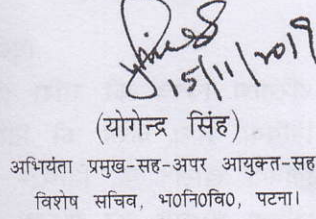 15/11/2019
(योगेन्द्र सिंह)
अभियंता प्रमुख-सह-अपर आयुक्त-सह
विशेष सचिव, भ०नि०वि०, पटना।